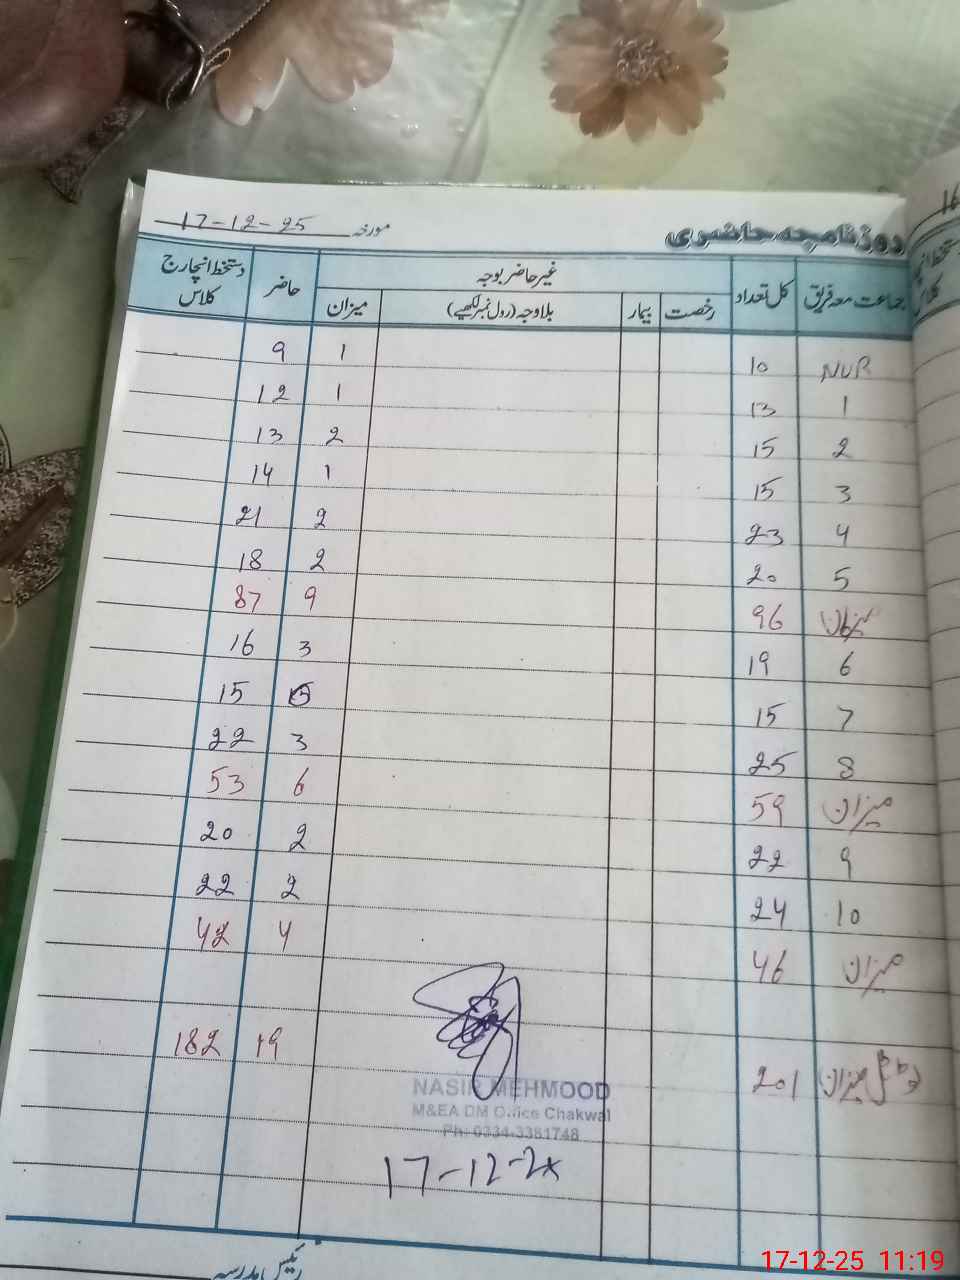 روزنامچہ حاضری مورخہ 17-12-25
جماعت معہ فریق کل تعداد غیر حاضر بوجہ حاضر دستخط انچارج کلاس
رخصت بیمار بلاوجہ (رول نمبر لکھیے) میزان
NUR 10 1 9
1 13 1 12
2 15 2 13
3 15 1 14
4 23 2 21
5 20 2 18
میزان 96 9 87
6 19 3 16
7 15 15
8 25 3 22
میزان 59 6 53
9 22 2 20
10 24 2 22
میزان 46 4 42
میزان 201 19 182
NASIR MEHMOOD
M&EA DM Office Chakwal
Ph: 0334-3381748
17-12-2
رئیس مدرسہ
16
17-12-25 11:19